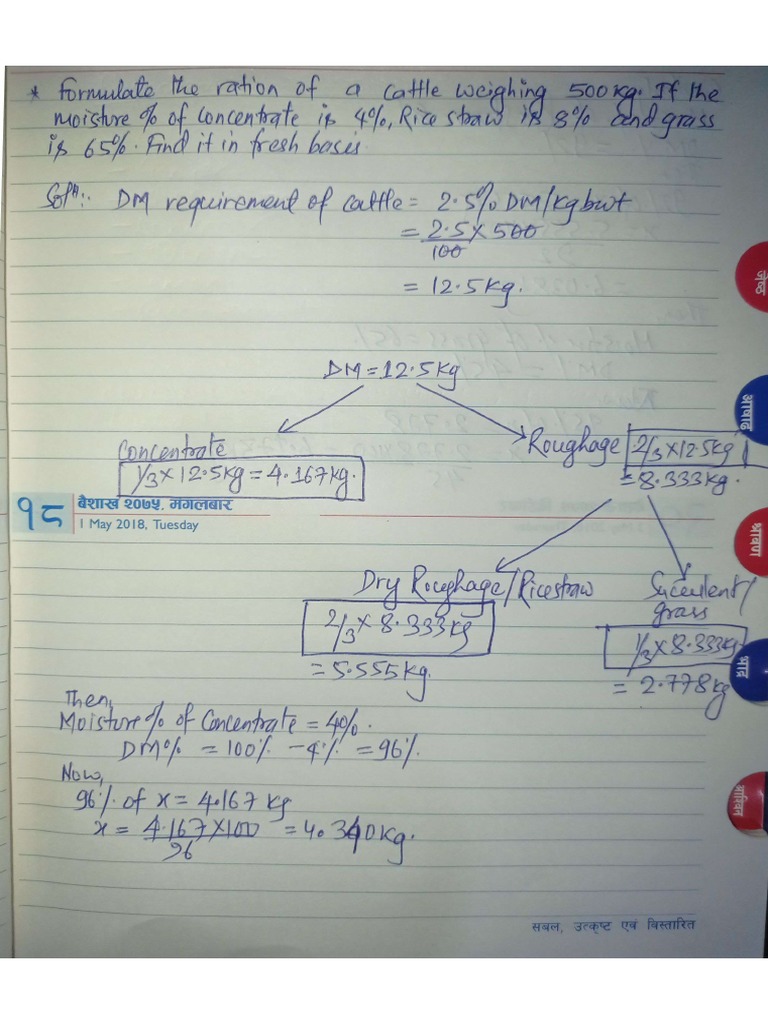 * Formulate the ration of a cattle weighing 500kg. If the
moisture % of concentrate is 4%, Rice straw is 8% and grass
is 65%. Find it in fresh basis.
Solⁿ:. DM requirement of cattle = 2.5% DM/kg bwt
= 2.5 × 500
100
= 12.5 kg.
DM = 12.5 kg
Concentrate
1/3 × 12.5kg = 4.167kg.
Roughage 2/3 × 12.5kg
= 8.333kg.
१८ बैशाख २०७५, मंगलबार
1 May 2018, Tuesday
Dry Roughage/Ricestraw
2/3 × 8.333kg
= 5.555kg.
Succulent/
grass
1/3 × 8.333kg
= 2.778kg
Then,
Moisture % of Concentrate = 4%.
DM% = 100% - 4% = 96%.
Now,
96% of x = 4.167 kg
x = 4.167 × 100 = 4.340kg.
96
जेष्ठ
आषाढ
श्रावण
भाद्र
आश्विन
सबल, उत्कृष्ट एवं विस्तारित